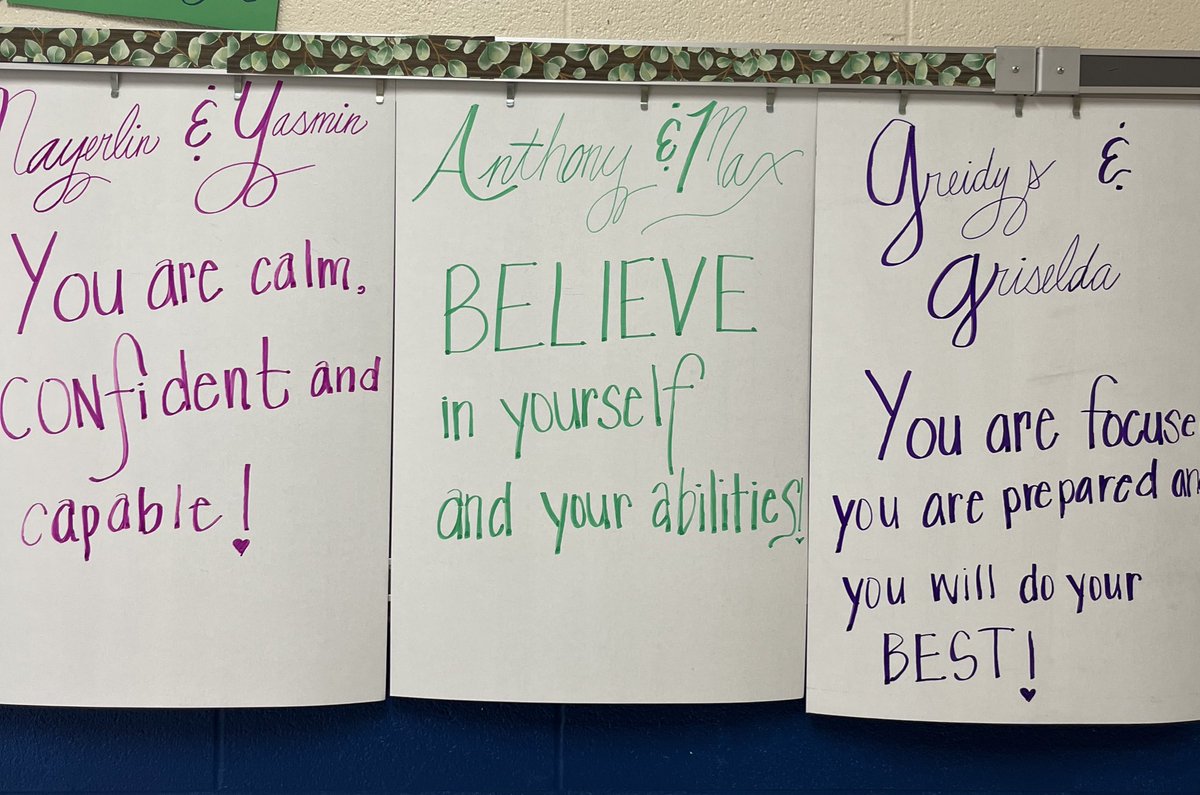 Nayerlin & Yasmin
You are calm,
confident and
capable!
Anthony & Max
BELIEVE
in yourself
and your abilities!
Greidys &
Griselda
You are focuse
you are prepared an
you will do your
BEST!